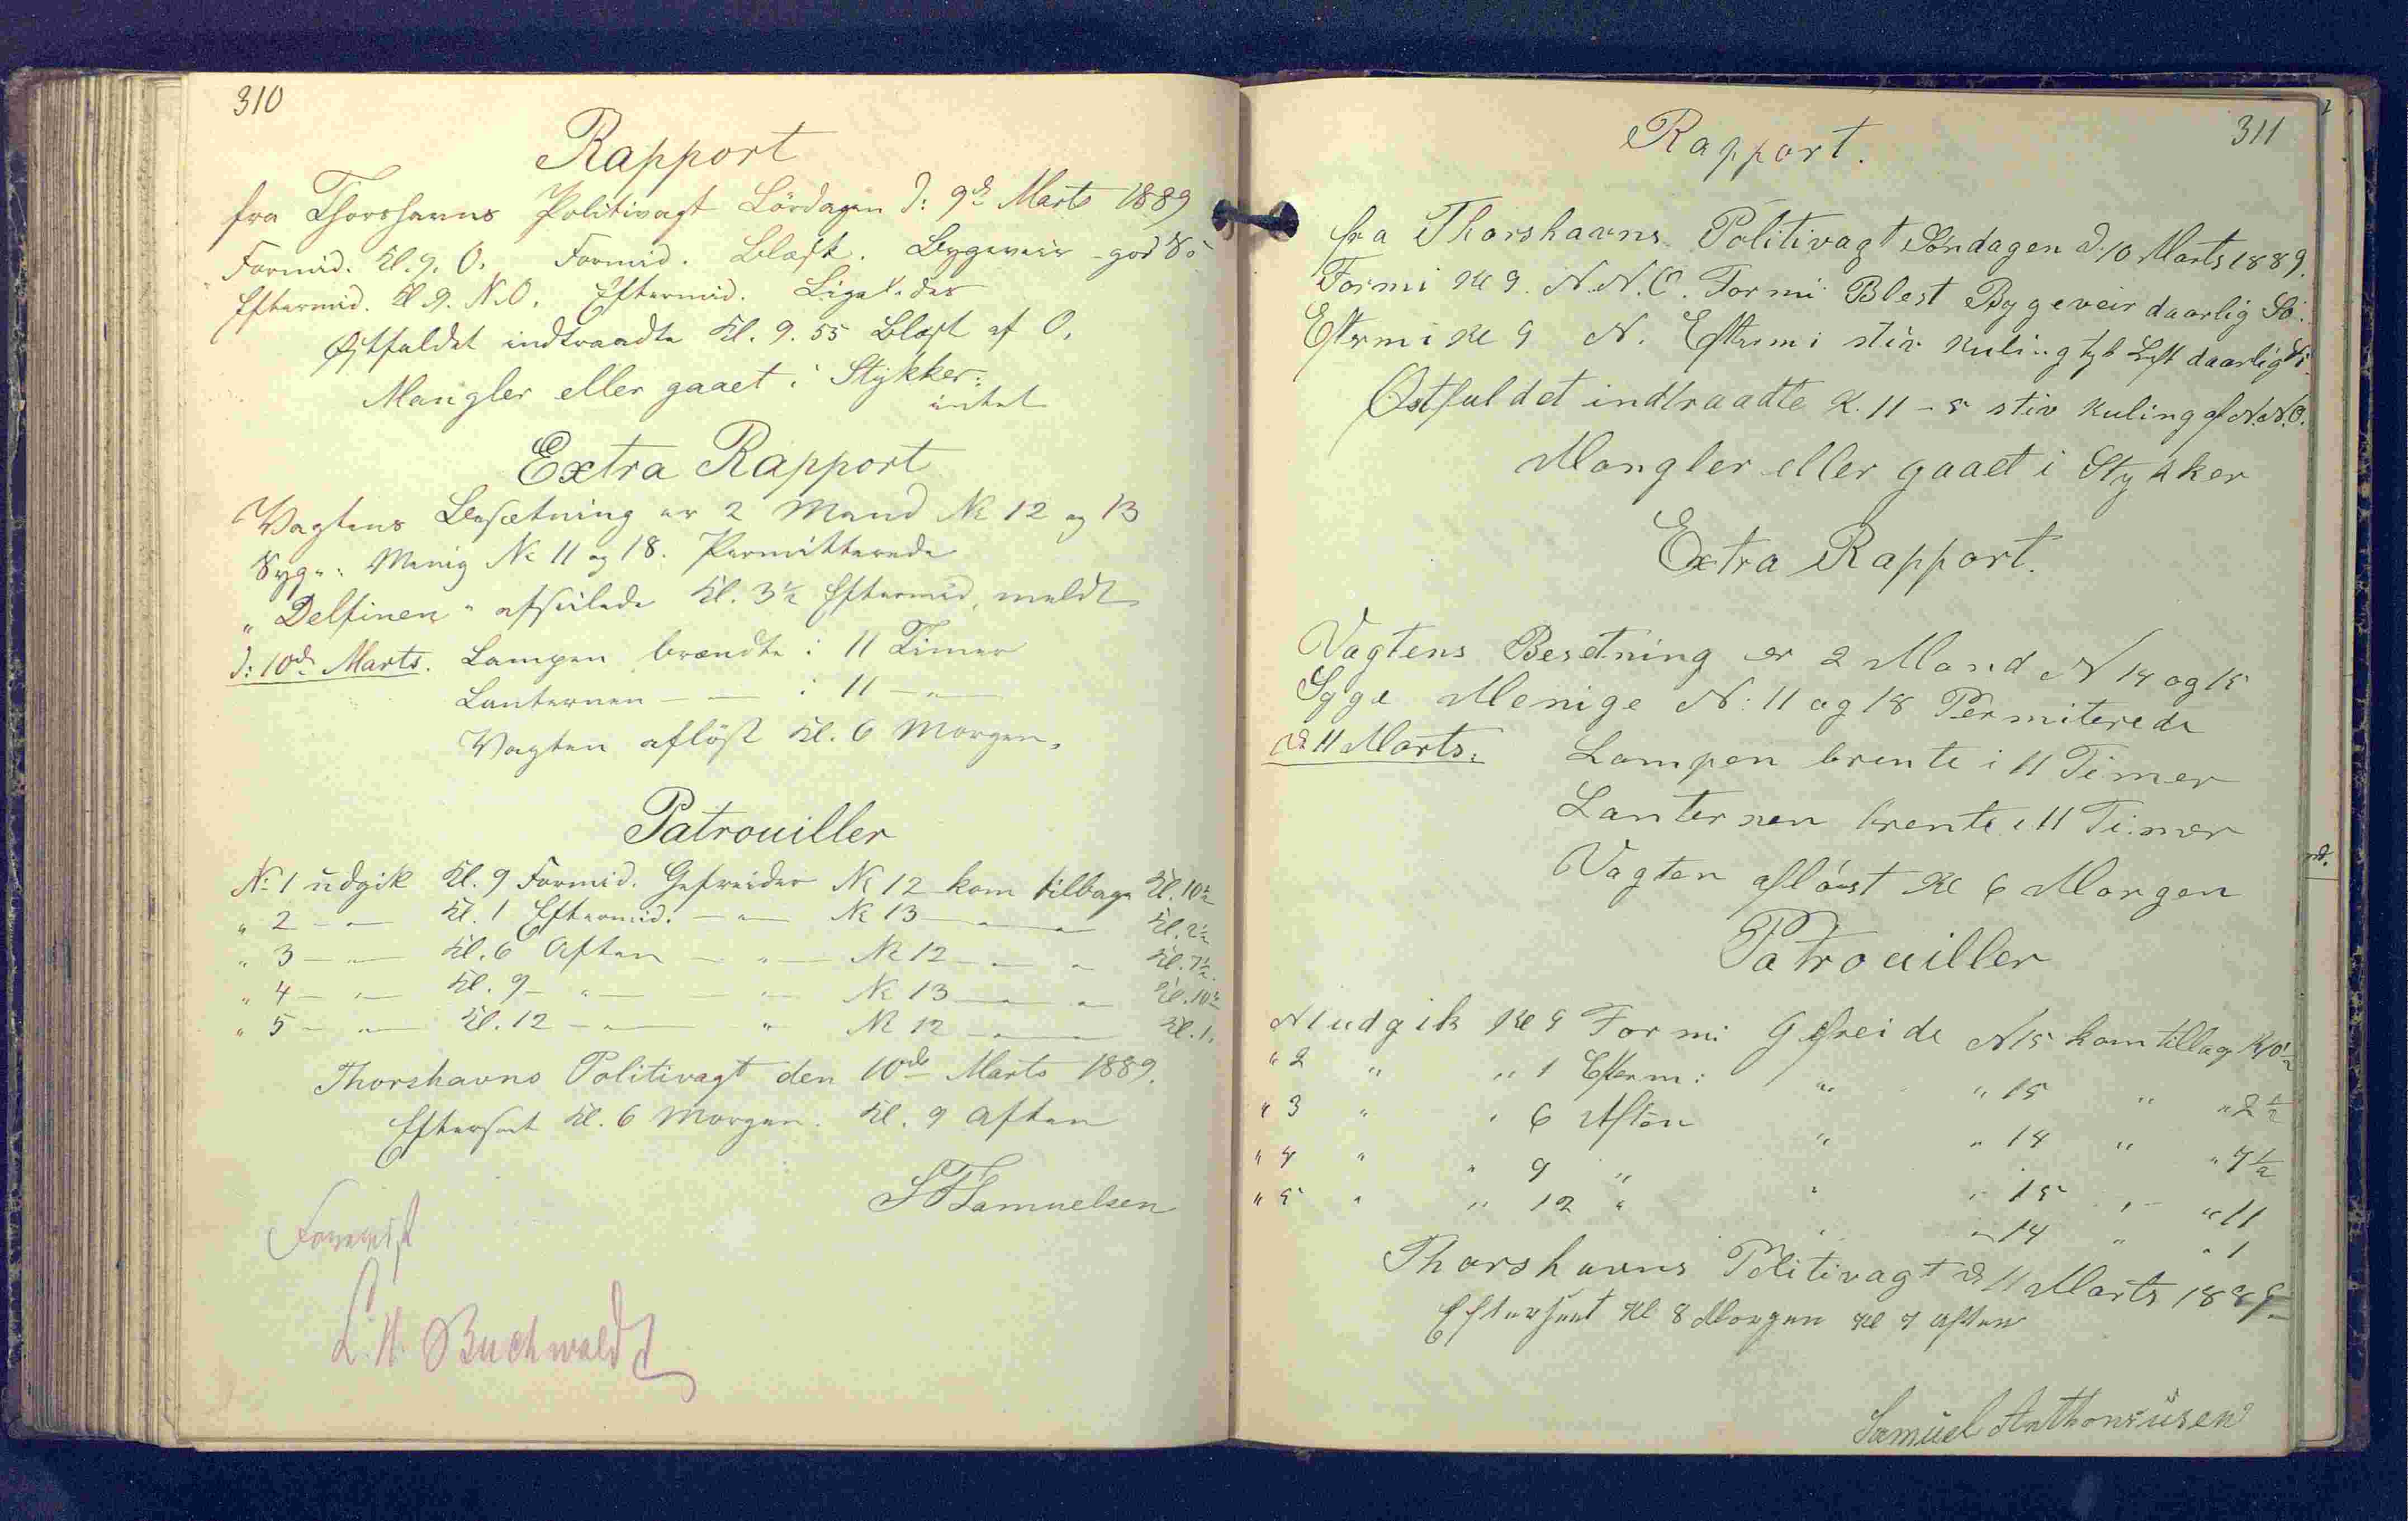 310
Rapport
fra Thorshavns Politivagt Lördagen d: 9de Marts 1889
Formid. Kl. 9. O. Formid. Blæst. Bygeveir - god Sö
Eftermid. Kl. 9. N.O. Eftermid. Ligeledes
Østfaldet indtraadte Kl. 9.55 Blæst af O.
Mangler eller gaaet i Stykker:
intet
Extra Rapport
Vagtens Besætning er 2 Mand No 12 og 13
Syge: Menig No 11 og 18. Permitterede
"Delfinen" afseilede Kl. 3½ Eftermid. meldt
d: 10de Marts. Lampen brændte i 11 Timer
Lanternen — — i 11 — " —
Vagten aflöst Kl. 6 Morgen.
Patrouiller
No 1 udgik Kl. 9 Formid. Gefreider No 12 kom tilbage Kl. 10½
" 2 — " — Kl. 1 Eftermid. — " — No 13 — " — " Kl. 2½
" 3 — " — Kl. 6 Aften — " — No 12 — " — " Kl. 7½.
" 4 — " — Kl. 9 — " — — " — No 13 — " — " Kl. 10½
" 5 — " — Kl. 12 — " — " No 12 — " — Kl. 1.
Thorshavns Politivagt den 10de Marts 1889.
Efterseet Kl. 6 Morgen. Kl. 9 Aften
Samuelsen
Forevist
L. H. Buchwaldt
311
Rapport.
fra Thorshavns Politivagt Söndagen d. 10 Marts 1889.
Formi Kl 9. N.N.O. Formi Blest Bygeveir daarlig Sö.
Eftermi Kl 9 N. Eftermi stiv Kuling tyk Luft daarlig Sö.
Østfaldet indtraadte K. 11-5 stiv Kuling af N.N.O.
Mangler eller gaaet i Stykker
Extra Rapport.
Vagtens Besetning er 2 Mand N 14 og 15
Syge Menige N: 11 og 18 Permiterede
d 11 Marts. Lampen brente i 11 Timer
Lanternen brente i 11 Timer
Vagten aflöst Kl 6 Morgen
Patrouiller
N 1 udgik Kl 9 Formi Gefreide N 15 kom tilbag K 10½
" 2 " " 1 Efterm: " " 15 " " 2½
" 3 " " 6 Aften " " 14 " " 7½
" 4 " " 9 " " " 15 " " 11
" 5 " " 12 " " " 14 " " 1
Thorshavns Politivagt d 11 Marts 1889
Efterseet Kl 8 Morgen Kl 7 Aften
Samuel Anthoniusen